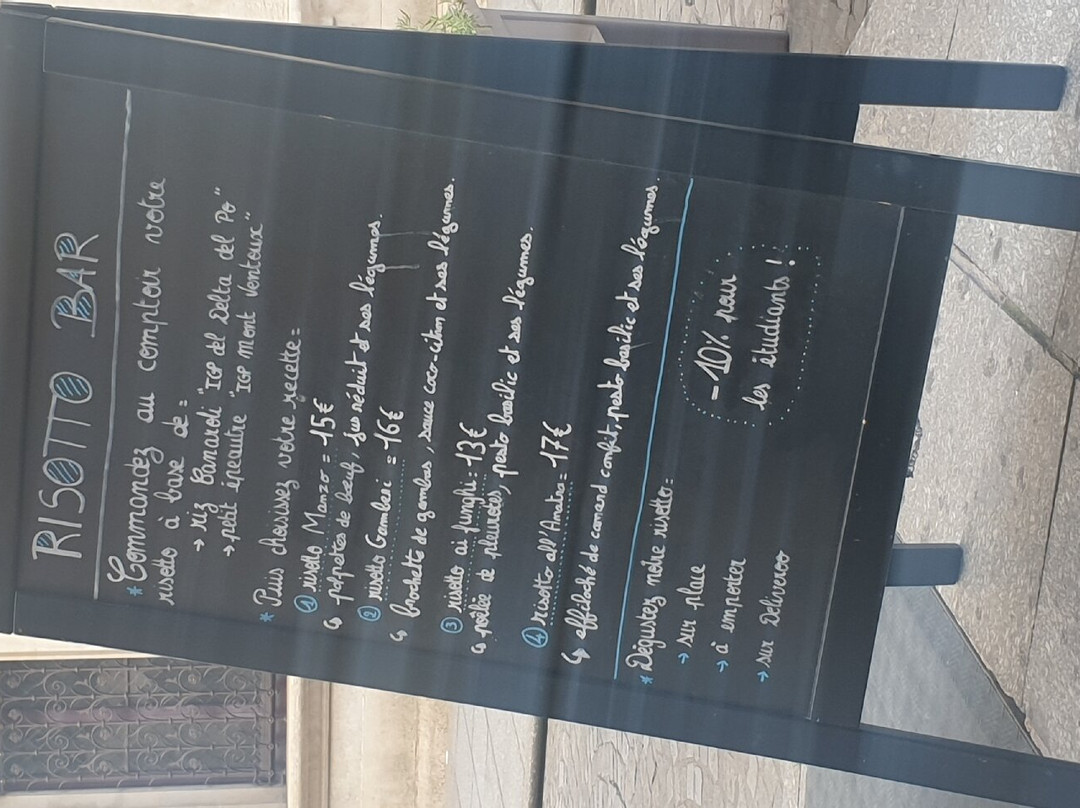 RISOTTO BAR
* Commandez au comptoir votre
risotto à base de =
→ riz Carnaroli "IGP del Delta del Po"
→ petit épeautre "IGP mont Ventoux"
* Puis choisissez votre recette =
① risotto Manzo = 15€
↳ paupiettes de bœuf, jus réduit et ses légumes.
② risotto Gamberi = 16€
↳ brochette de gambas, sauce coco-citron et ses légumes.
③ risotto ai funghi = 13€
↳ poêlée de pleurotes, pesto basilic et ses légumes.
④ risotto all'Anatra = 17€
↳ effiloché de canard confit, pesto basilic et ses légumes.
* Dégustez notre risotto =
→ sur place
→ à emporter
→ sur Deliveroo
-10% pour
les étudiants !